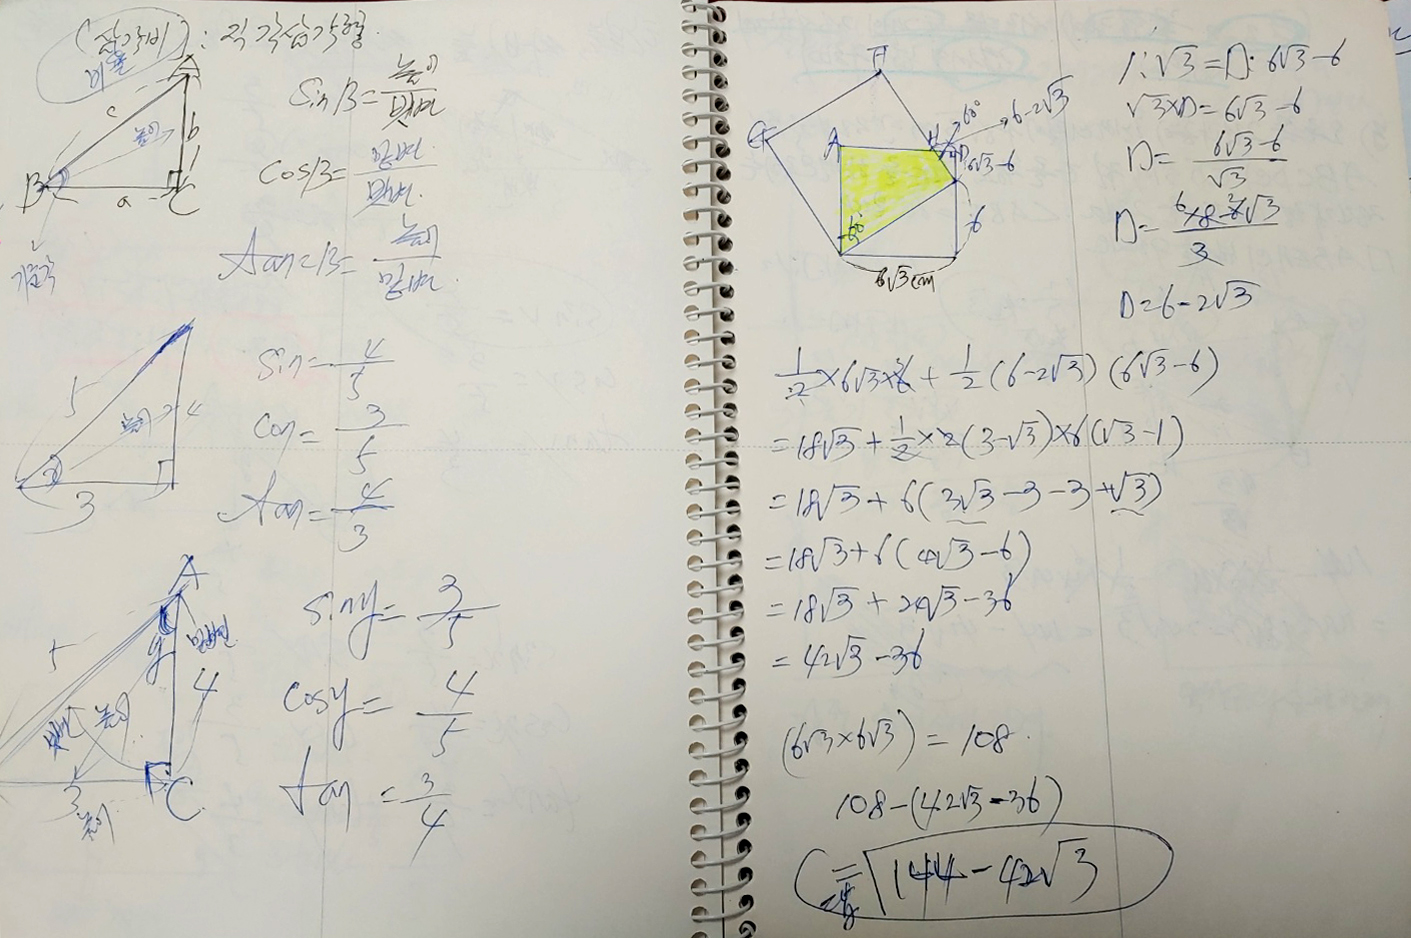 (삼각비) : 직각삼각형.
비율
A
c
높이
b
B
a
C
기준각
Sin B = 높이/빗변
Cos B = 밑변/빗변.
tan B = 높이/밑변.
5
높이
4
3
Sin = 4/5
Con = 3/5
tan = 4/3
A
5
y
밑변
4
빗변
높이
3
C
높이
Siny = 3/5
Cosy = 4/5
tan = 3/4
H
G
A
60°
6-2√3
6√3-6
60°
6
6√3cm
1:√3 = D: 6√3-6
√3×D = 6√3-6
D = 6√3-6/√3
D = 6-2√3
1/2 ×6√3×6 + 1/2 (6-2√3) (6√3-6)
= 18√3 + 1/2 ×2(3-√3)×6(√3-1)
= 18√3 + 6(3√3-3-3+√3)
= 18√3+6(4√3-6)
= 18√3 + 24√3-36
= 42√3-36
(6√3×6√3) = 108.
108-(42√3-36)
= 144-42√3